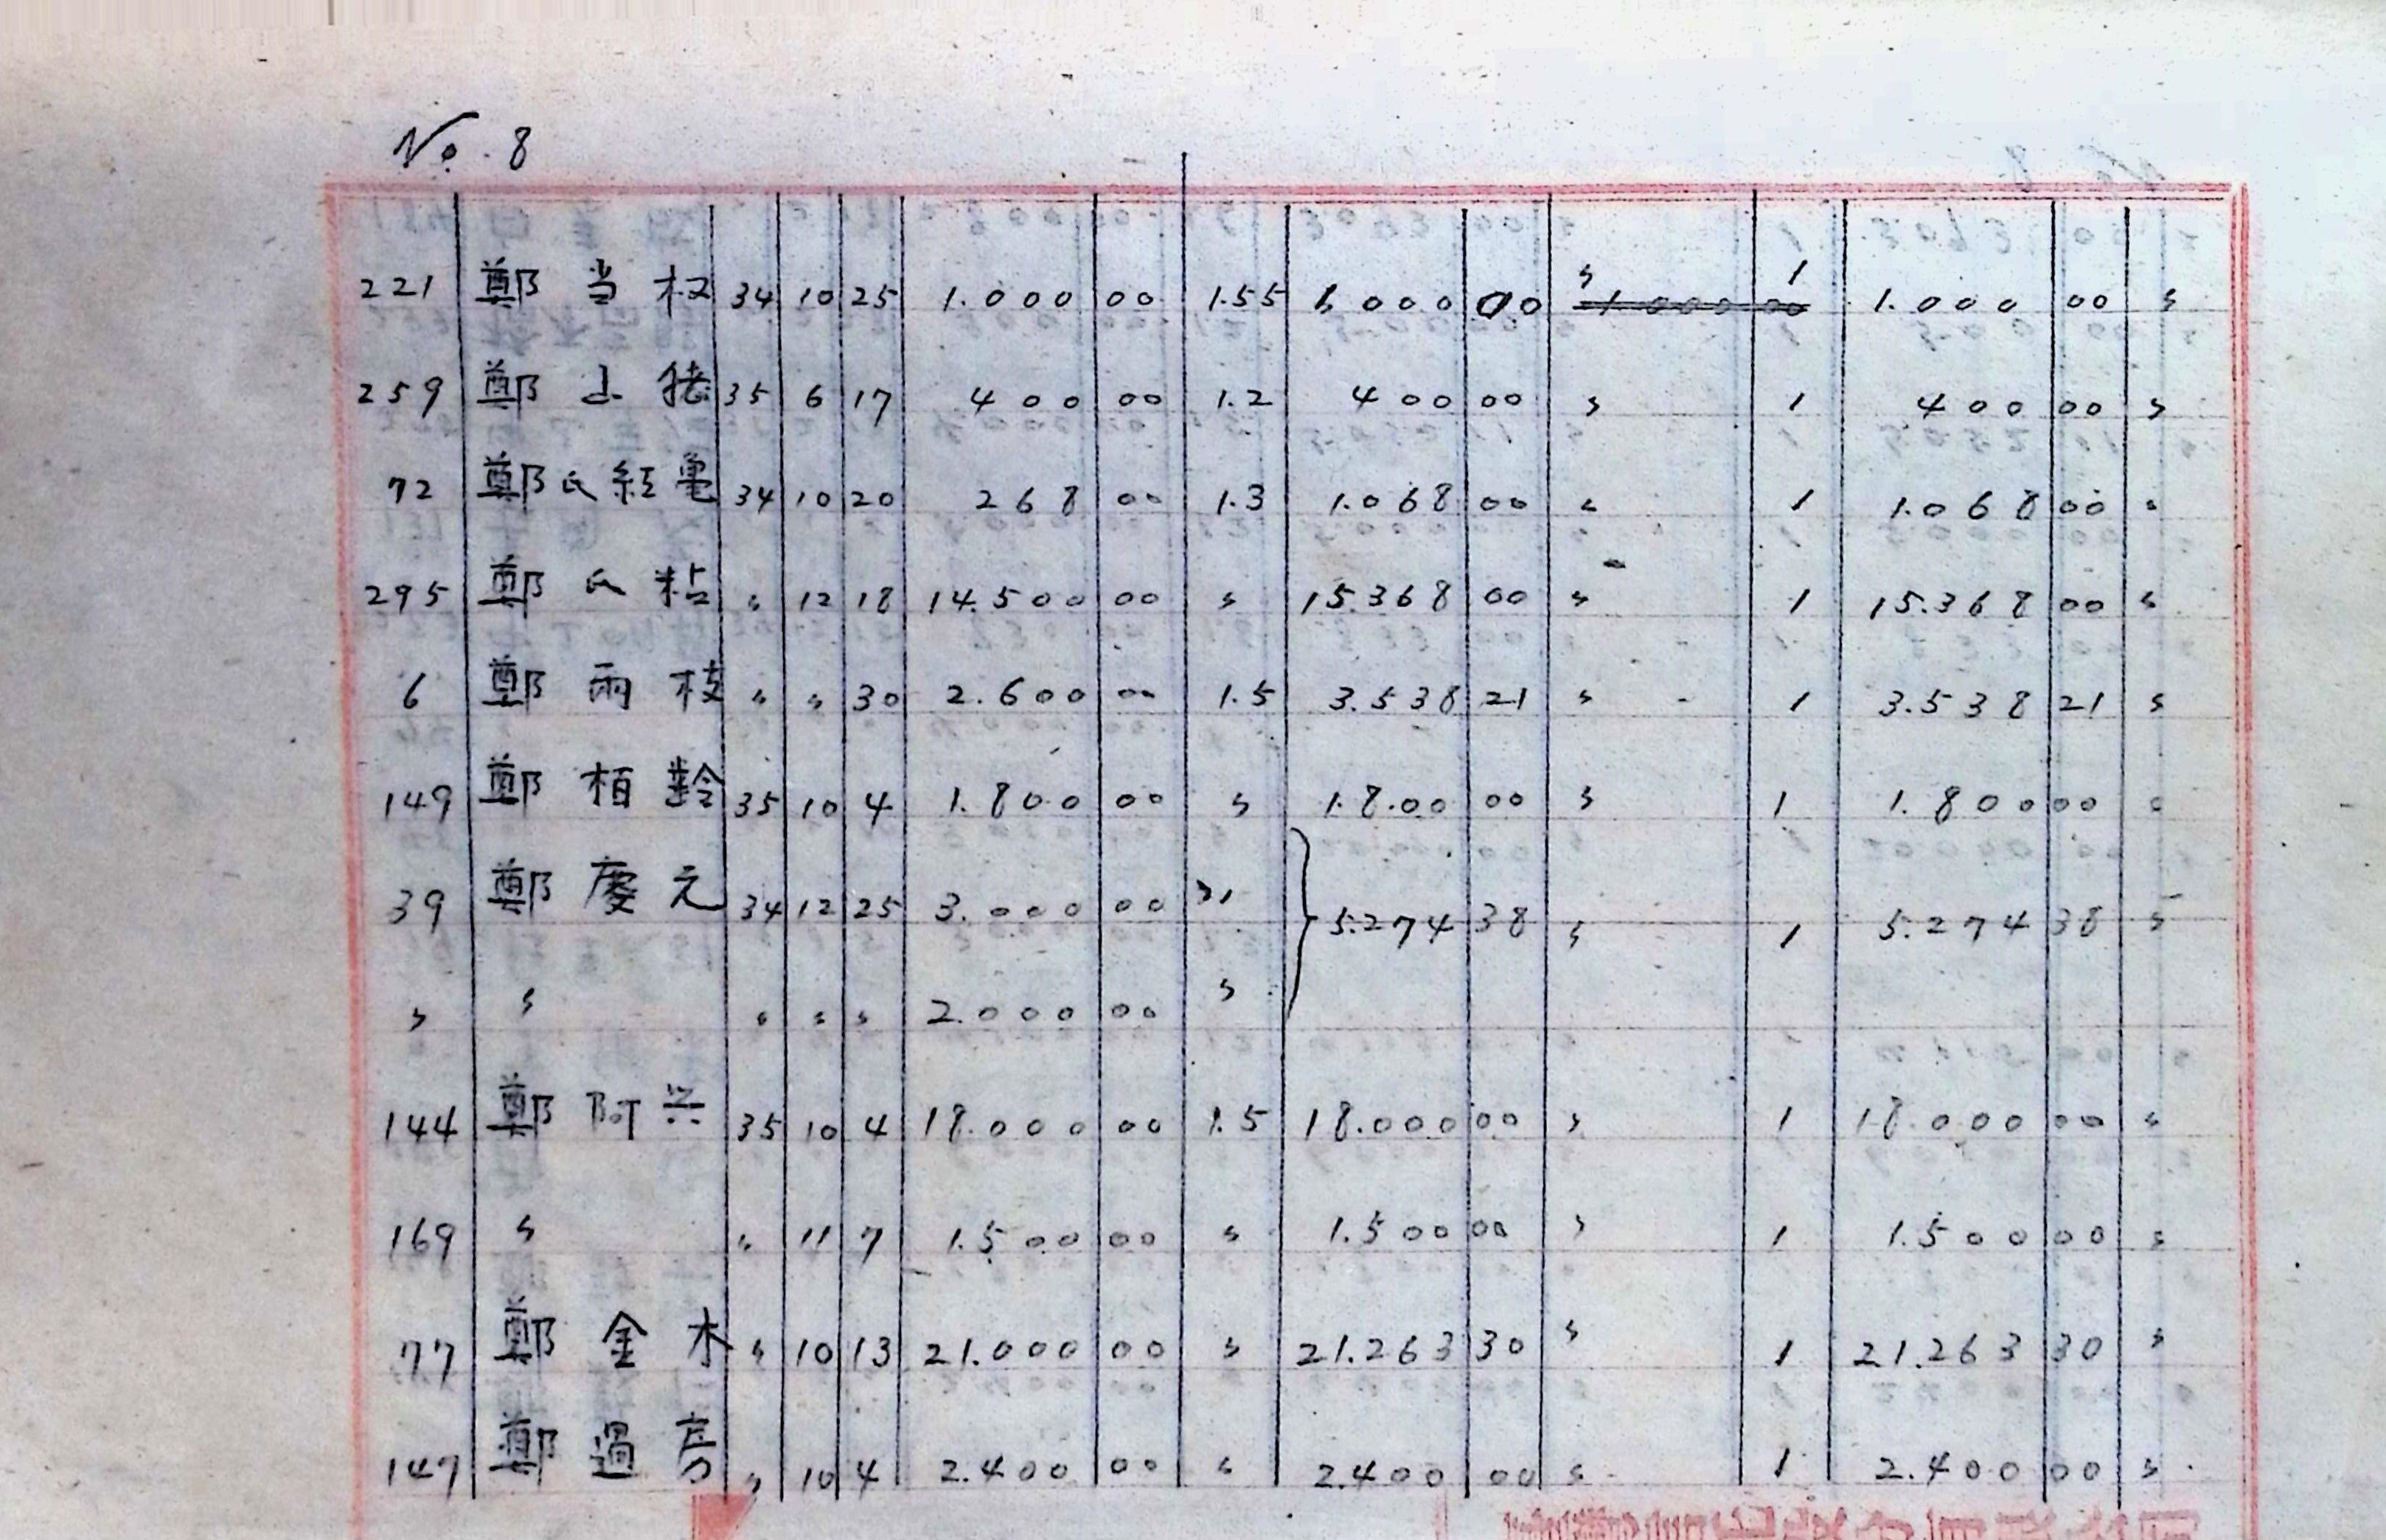 No. 8
221 鄭当权 34 10 25 1.000 00 1.55 1.000 00 〃 1 1.000 00 〃
1.000 00
259 鄭 35 6 17 400 00 1.2 400 00 〃 1 400 00 〃
72 鄭氏紅亀 34 10 20 268 00 1.3 1.068 00 〃 1 1.068 00 〃
295 鄭氏粘 〃 12 18 14.500 00 〃 15.368 00 〃 1 15.368 00 〃
6 鄭雨枝 〃 〃 30 2.600 00 1.5 3.538 21 〃 1 3.538 21 〃
149 鄭栢齡 35 10 4 1.800 00 〃 1.8.00 00 〃 1 1.800 00 〃
39 鄭慶元 34 12 25 3.000 00 5.274 38 〃 1 5.274 38 〃
〃 〃 〃 〃 〃 2.000 00 〃
144 鄭阿兴 35 10 4 18.000 00 1.5 18.000 00 〃 1 18.000 00 〃
169 〃 〃 11 7 1.500 00 〃 1.500 00 〃 1 1.500 00 〃
77 鄭金木 〃 10 13 21.000 00 〃 21.263 30 〃 1 21.263 30 〃
147 鄭過房 〃 10 4 2.400 00 〃 2.400 00 〃 1 2.400 00 〃